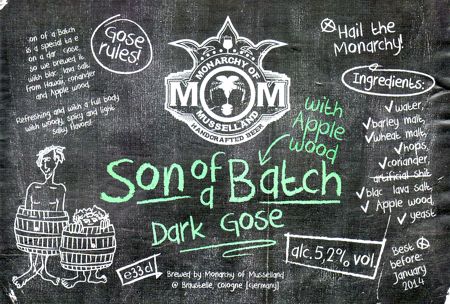 Son of a Batch
is a special take
on a dark Gose,
so we brewed it
with black lava salt
from Hawaii, coriander
and Apple wood.
Refreshing and with a full body
with woody, spicy and light
salty flavors!
Gose
rules!
MONARCHY OF
M M
MUSSELLAND
HANDCRAFTED BEER
with
Apple
wood
Son of
a Batch
Dark Gose
Hail the
Monarchy!
Ingredients:
✓ water,
✓ barley malt,
✓ wheat malt,
✓ hops,
✓ coriander,
artificial shit
✓ blac lava salt,
✓ Apple wood,
✓ yeast
alc. 5,2% vol.
Best
before:
January
2014
e33cl
Brewed by Monarchy of Musselland
@ Braustelle, Cologne [Germany]